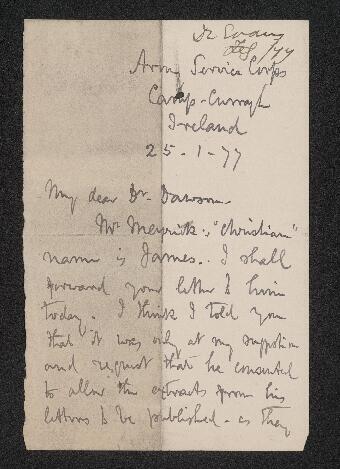 Dr Evans
Feb /77
Army Service Corps
Camp - Curragh
Ireland
25-1-77
My dear Dr. Dawson.
Mr Meyrick's "Christian"
name is James. I shall
forward your letter to him
today. I think I told you
that it was only at my suggestion
and request that he consented
to allow the extracts from his
letters to be published - as they